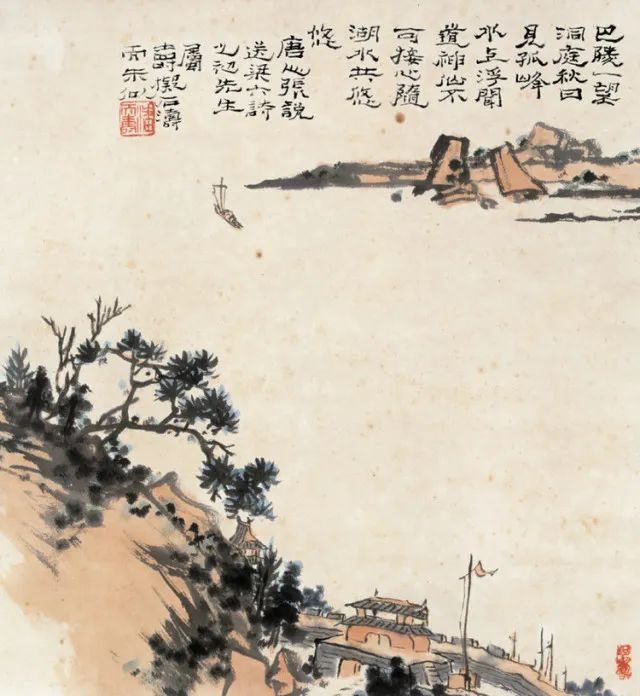 巴陵一望
洞庭秋日
見孤峰
水上浮聞
道神仙不
可接心隨
湖水共悠
悠
唐人張說
送梁六詩
以初先生
屬
壽橅石濤
而未似